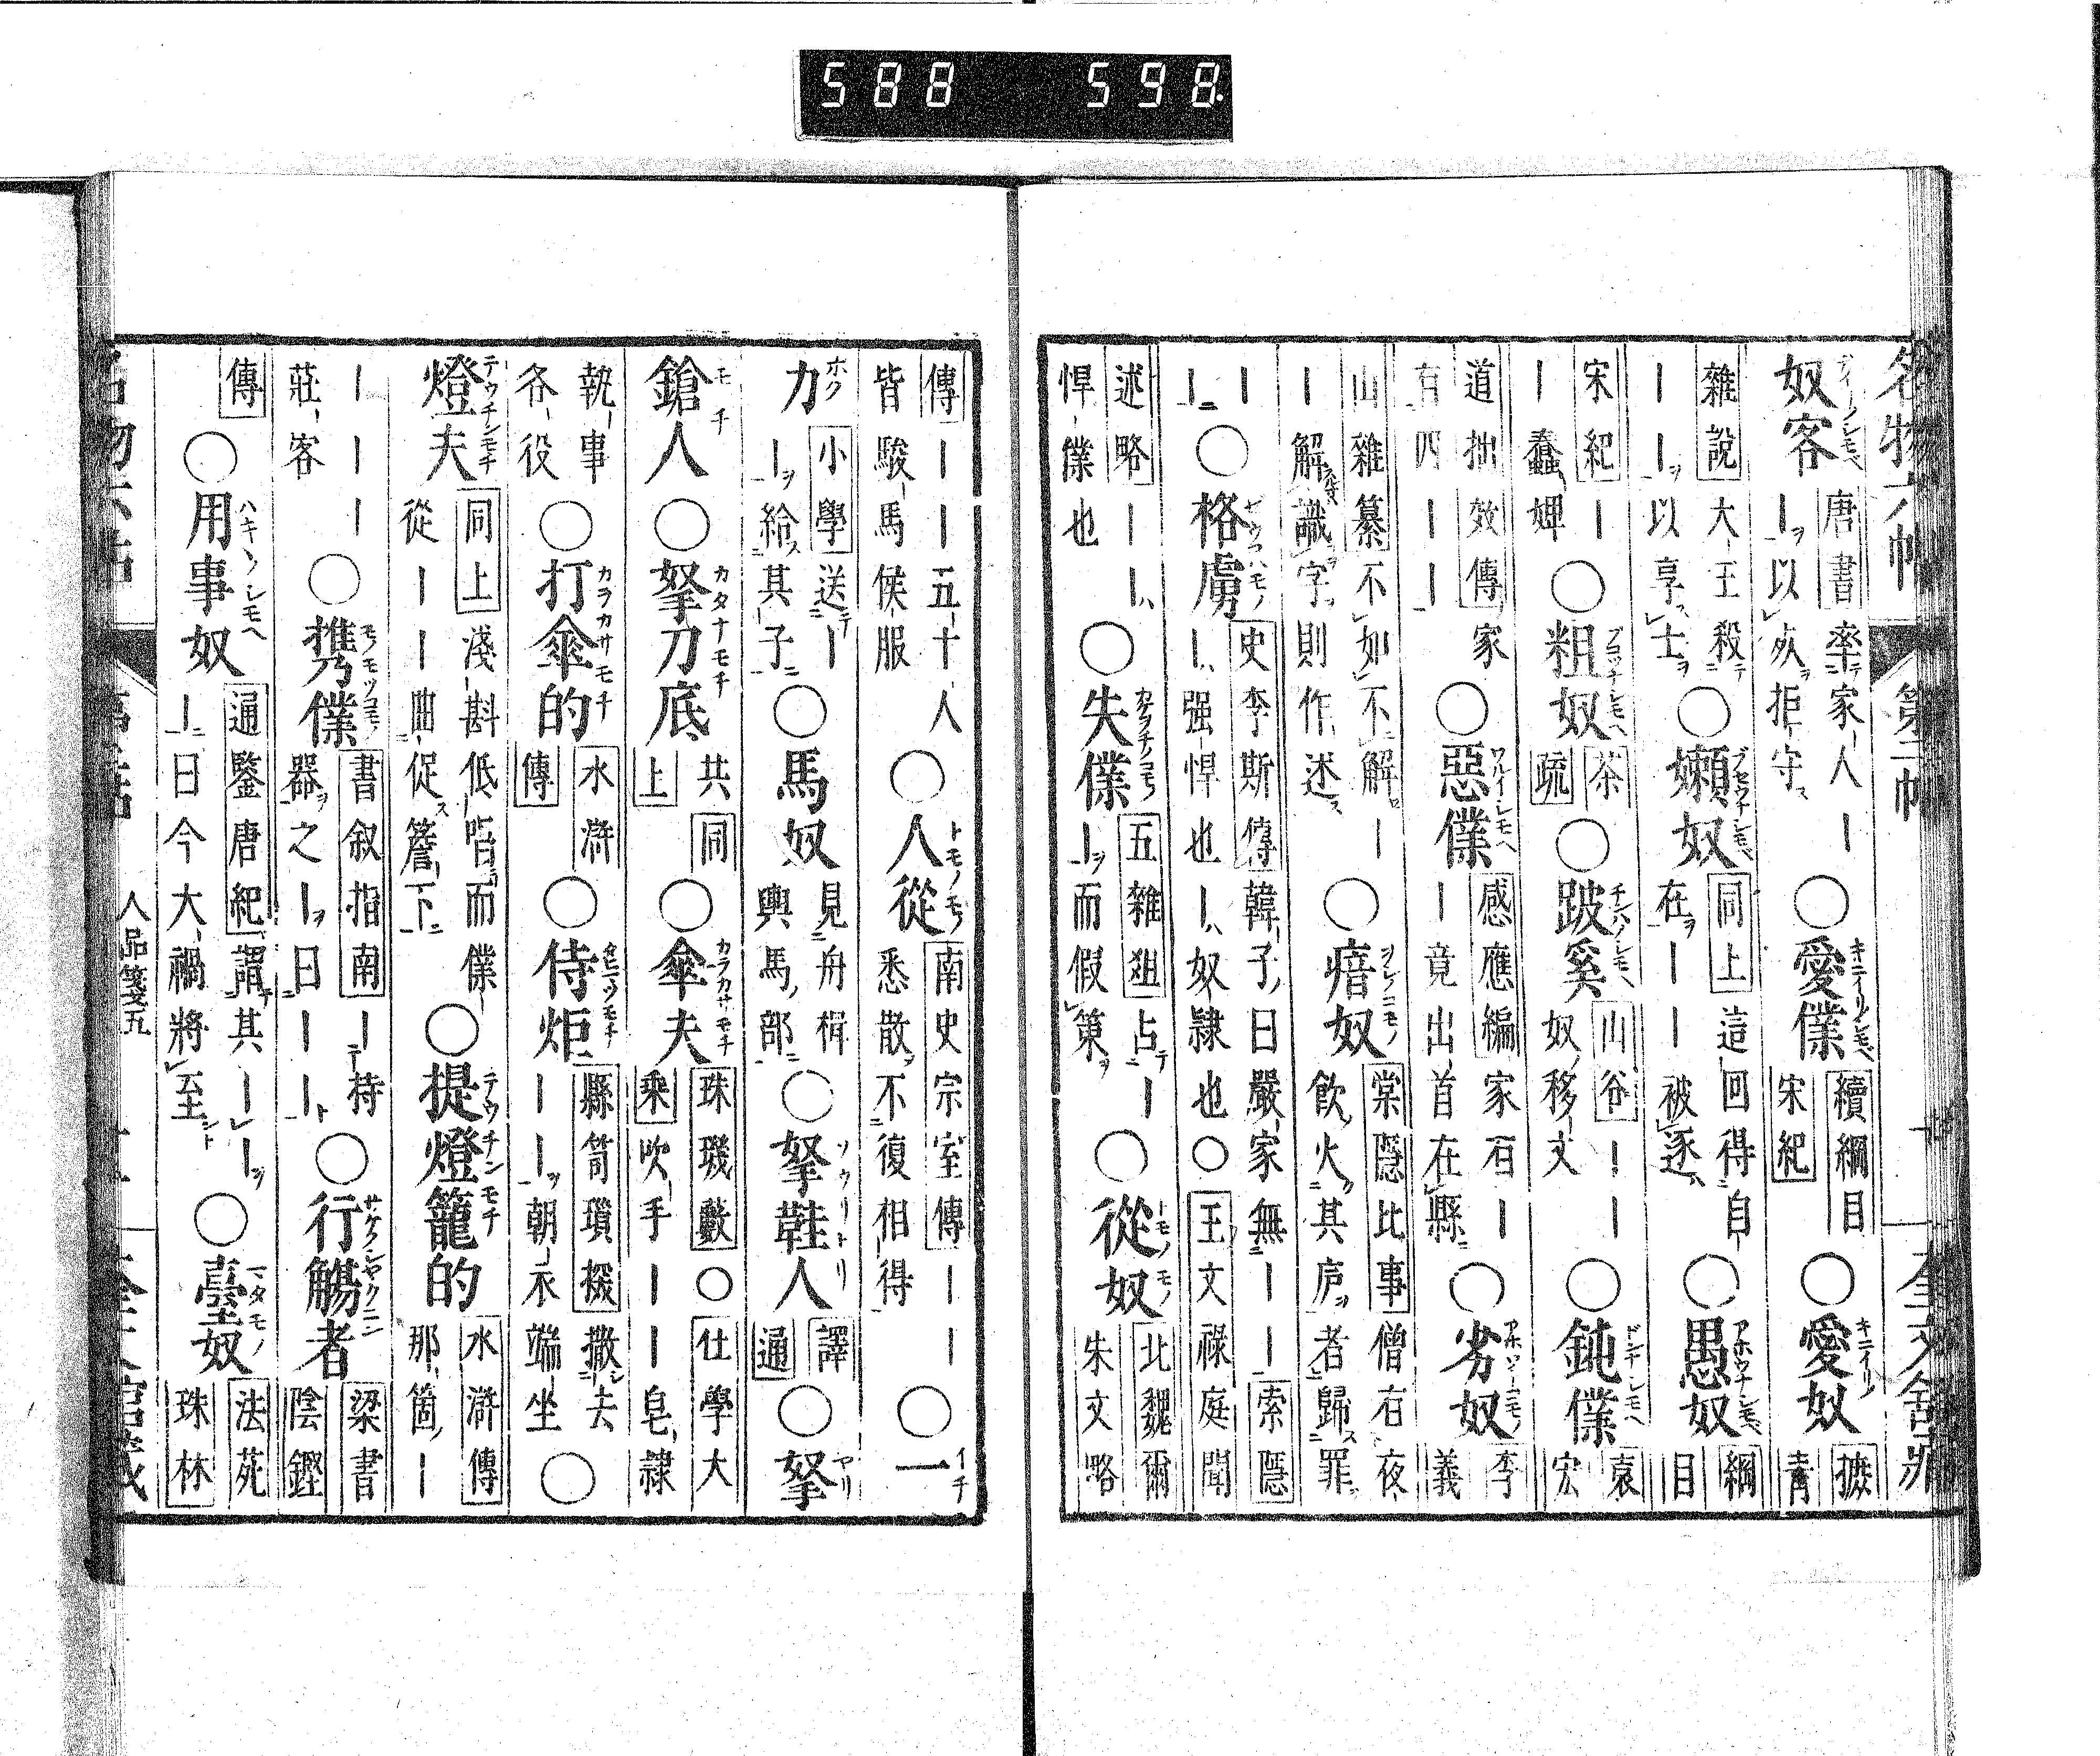 名物六帖 第二帖 奎文舘藏
奴客 唐書 率家人｜｜以火拒守 ○愛僕 續綱目宋紀 ○愛奴 摭青
雜說 大王殺｜｜以享士 ○嬾奴 同上 這回得自在｜｜被逐 ○愚奴 綱目
宋紀 ｜｜蠢婢 ○粗奴 茶疏 ○跛奚 山谷｜｜奴移文 ○鈍僕 袁宏
道拙效傳 家有四｜｜ ○惡僕 感應編 家石｜｜竟出首在縣 ○劣奴 李義
山雜纂 不如不解｜｜解識字則作述 ○瘖奴 棠隱比事 僧右夜飲火其庐者歸罪
｜｜ ○格虜 史李斯傳 韓子曰嚴家無｜｜ 索隱 ｜強悍也｜奴隷也○王文祿庭聞
述略 ｜｜悍僕也 ○失僕 五雜俎 占｜｜而假策 ○從奴 北魏爾朱文略
傳 ｜｜五十人皆駿馬侯服 ○人從 南史宗室傳 ｜｜悉散不復相得 ○一
力 小學 送｜｜給其子 ○馬奴 見舟楫輿馬部 ○拏鞋人 譯通 ○拏
鎗人 ○拏刀底 共同上 ○傘夫 珠璣藪○仕學大乘 吹手｜｜皂隷
執事各役 ○打傘的 水滸傳 ○侍炬 縣笥瑣探 撒去｜｜朝衣端坐 ○
燈夫 同上 淺斟低唱而僕從｜｜曲促簷下 ○提燈籠的 水滸傳 那箇｜
｜｜｜莊客 ○攜僕 書叙指南 ｜持器之｜曰｜｜ ○行觴者 梁書陰鏗
傳 ○用事奴 通鑒唐紀 謂其｜｜｜曰今大禍將至 ○臺奴 法苑珠林
人品箋五
588 598